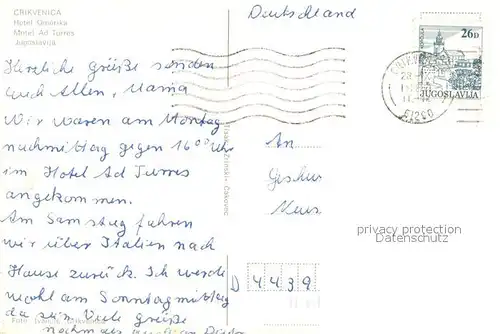 CRIKVENICA
Hotel Omorika
Motel Ad Turres
Jugoslavija
Deutschland
26D
JUGOSLAVIJA
51260
Herzliche Grüße senden
Euch Allen, Mama
Wir waren am Montag
nachmittag gegen 16 00 Uhr
im Hotel Ad Turres
angekommen.
Am Samstag fahren
wir über Italien nach
Hause zurück. Ich werde
wohl am Sonntagmittag
da sein. Viele Grüße
nochmals auch an
Zrinski Čakovec
An
Geschw
privacy protection
Datenschutz
D 4439
Foto